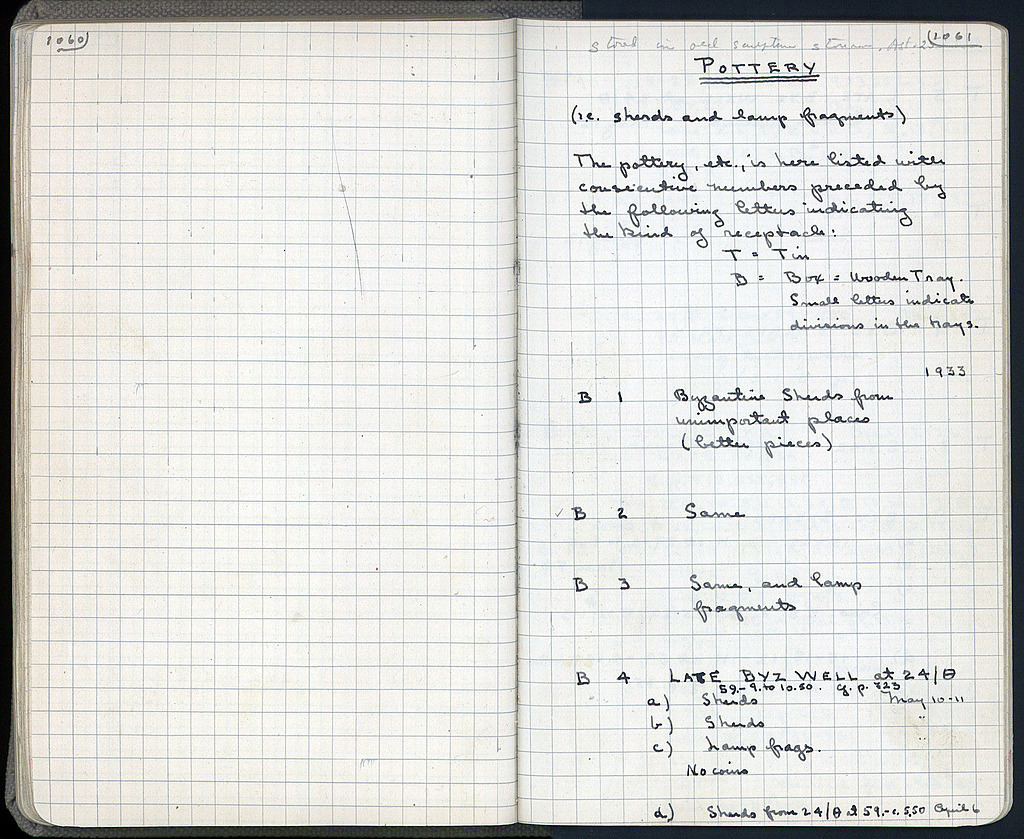 1060
1061
stored in old
POTTERY
(i.e. sherds and lamp fragments)
The pottery, etc., is here listed with
consecutive numbers preceded by
the following letters indicating
the kind of receptacle:
T = Tin
B = Box = Wooden Tray.
Small letters indicate
divisions in the trays.
1933
B 1 Byzantine Sherds from
unimportant places
(better pieces)
✓ B 2 Same
B 3 Same, and lamp
fragments
B 4 LATE BYZ WELL at 24/Θ
59.-9. to 10.50. cf. p. 723
a) Sherds May 10-11
b) Sherds "
c) Lamp frags. "
No coins
d) Sherds from 24/Θ at 59.-c. 5.50 April 6